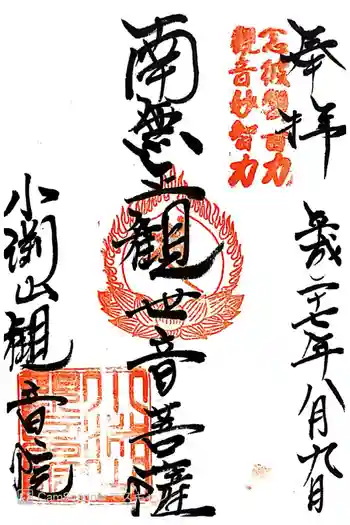 奉拝
平成二十七年八月九日
念彼観音力
観音妙智力
南無正観世音菩薩
小渕山観音院
CamScanner